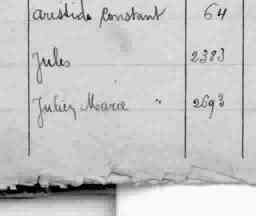 aristide Constant 64
Jules 2383
Julien Marie " 2693